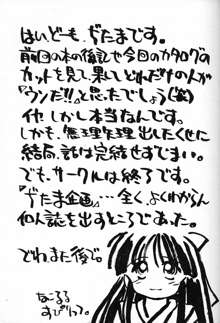 はいどーも、ぢたまです。
前回の本の後記や今回のカタログの
カットを見て、果してどれだけの人が
『ウソだ!!』と思ったでしょう(笑)
しかし本当なんです。
しかも、無理矢理出したくせに
結局、話は完結せずじまい。
でも、サークルは終了です。
『ぢたま企画』…全く、よくわからん
同人誌を出すところであった。
でわまた後で。
なこるる